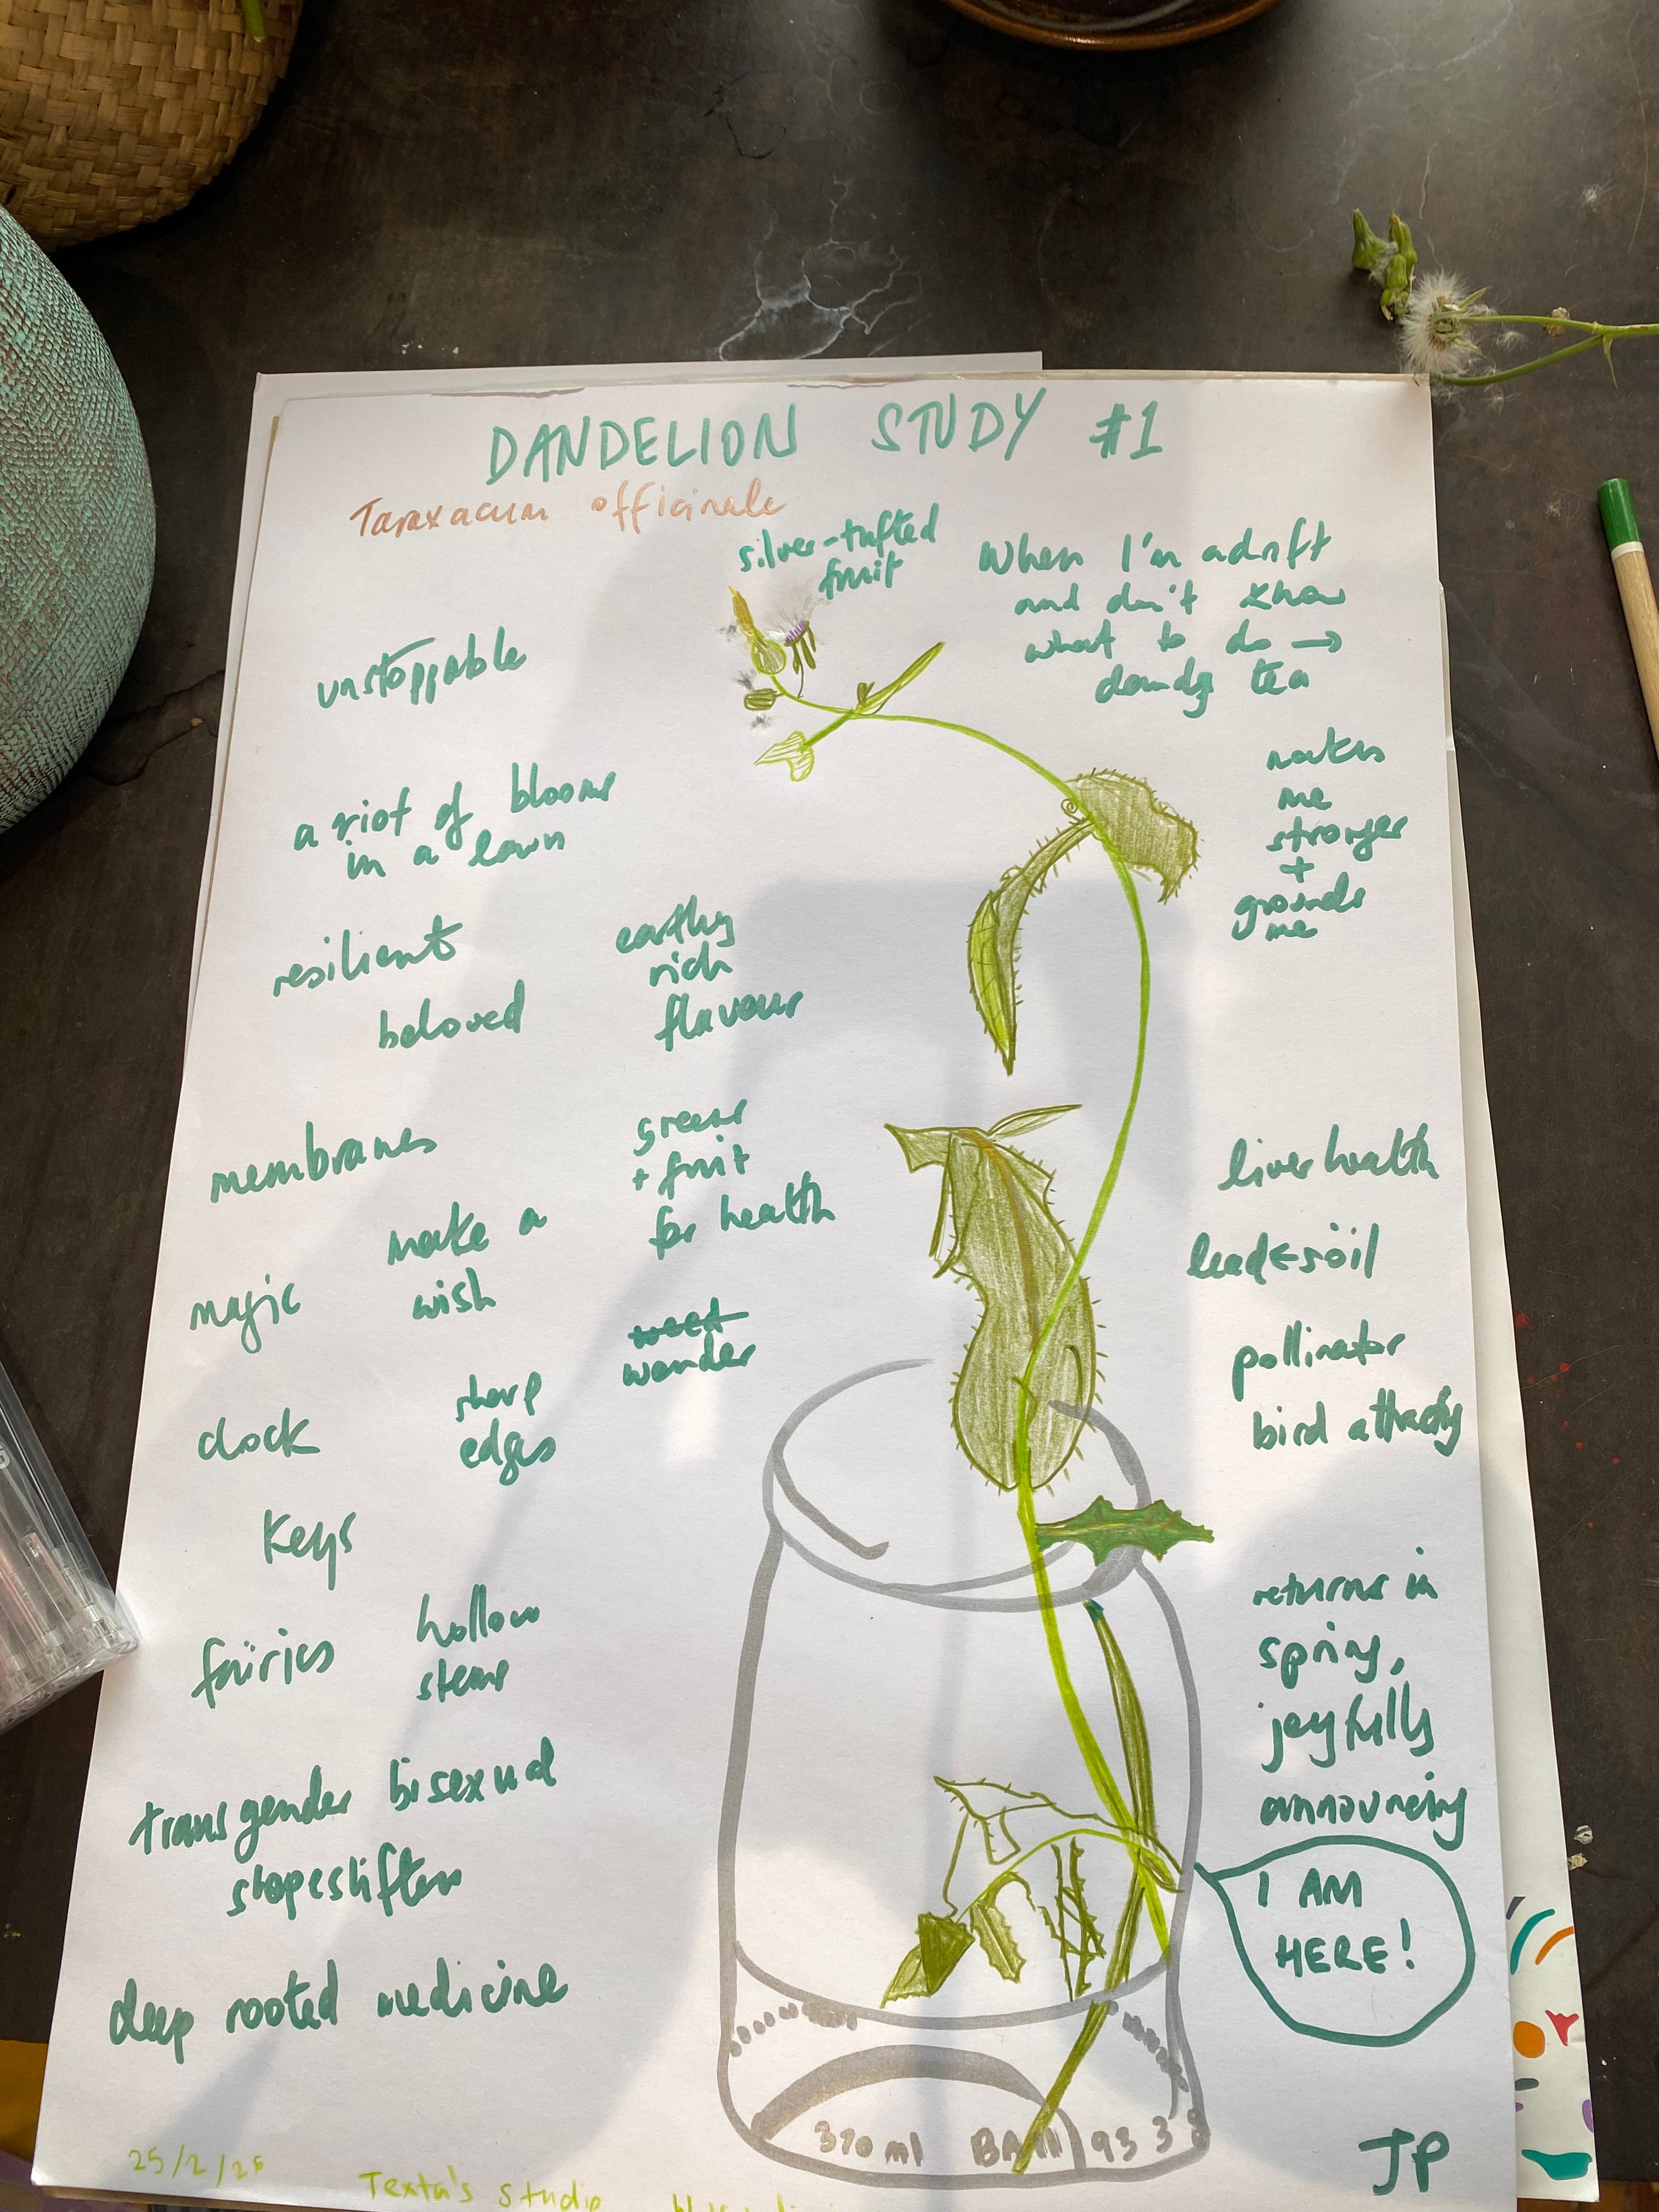 DANDELION STUDY #1
Taraxacum officinale
silver-tufted
fruit
When I'm adrift
and don't know
what to do →
dandy tea
unstoppable
makes
me
stronger
+
grounds
me
a riot of blooms
in a lawn
resilient
beloved
earthy
rich
flavour
membranes
greens
+ fruit
for health
make a
wish
magic
weed
wonder
clock
sharp
edges
keys
fairies
hollow
stems
transgender bisexual
shapeshifter
deep rooted medicine
liver health
lead←soil
pollinator
bird attracty
returns in
spring,
joyfully
announcing
I AM
HERE!
370ml
93 3
JP
25/2/2
Texta's studio